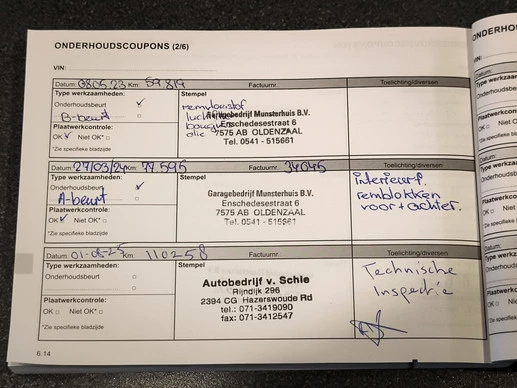 ONDERHOUDSCOUPONS (2/6)
VIN:
Datum: 08.05.23 Km: 59.819 Factuurnr.
Type werkzaamheden: Stempel Toelichting/diversen
Onderhoudsbeurt ✓ remvloeistof
B-beurt Garagebedrijf Munsterhuis B.V.
Plaatwerkcontrole: Enschedesestraat 6
OK ✓ Niet OK* 7575 AB OLDENZAAL
olie Tel. 0541 - 515661
*Zie specifieke bladzijde
Datum: 27/03/24 Km: 77595 Factuurnr. 34045 Toelichting/diversen
Type werkzaamheden: Stempel
Onderhoudsbeurt ✓ Garagebedrijf Munsterhuis B.V. interieurf.
A-beurt Enschedesestraat 6 remblokken
Plaatwerkcontrole: 7575 AB OLDENZAAL voor + achter.
OK ✓ Niet OK* Tel. 0541 - 515661
*Zie specifieke bladzijde
Datum: Km: 110258 Factuurnr. Toelichting/diversen
Type werkzaamheden: Stempel Technische
Onderhoudsbeurt Autobedrijf v. Schie Inspectie
Rijndijk 296
Plaatwerkcontrole: 2394 CG Hazerswoude Rd
OK Niet OK* tel.: 071-3419090
*Zie specifieke bladzijde fax: 071-3412547
6.14
ONDERHO
VIN:
Datum:
Type werk
Onderhou
Plaatwer
OK
*Zie spec